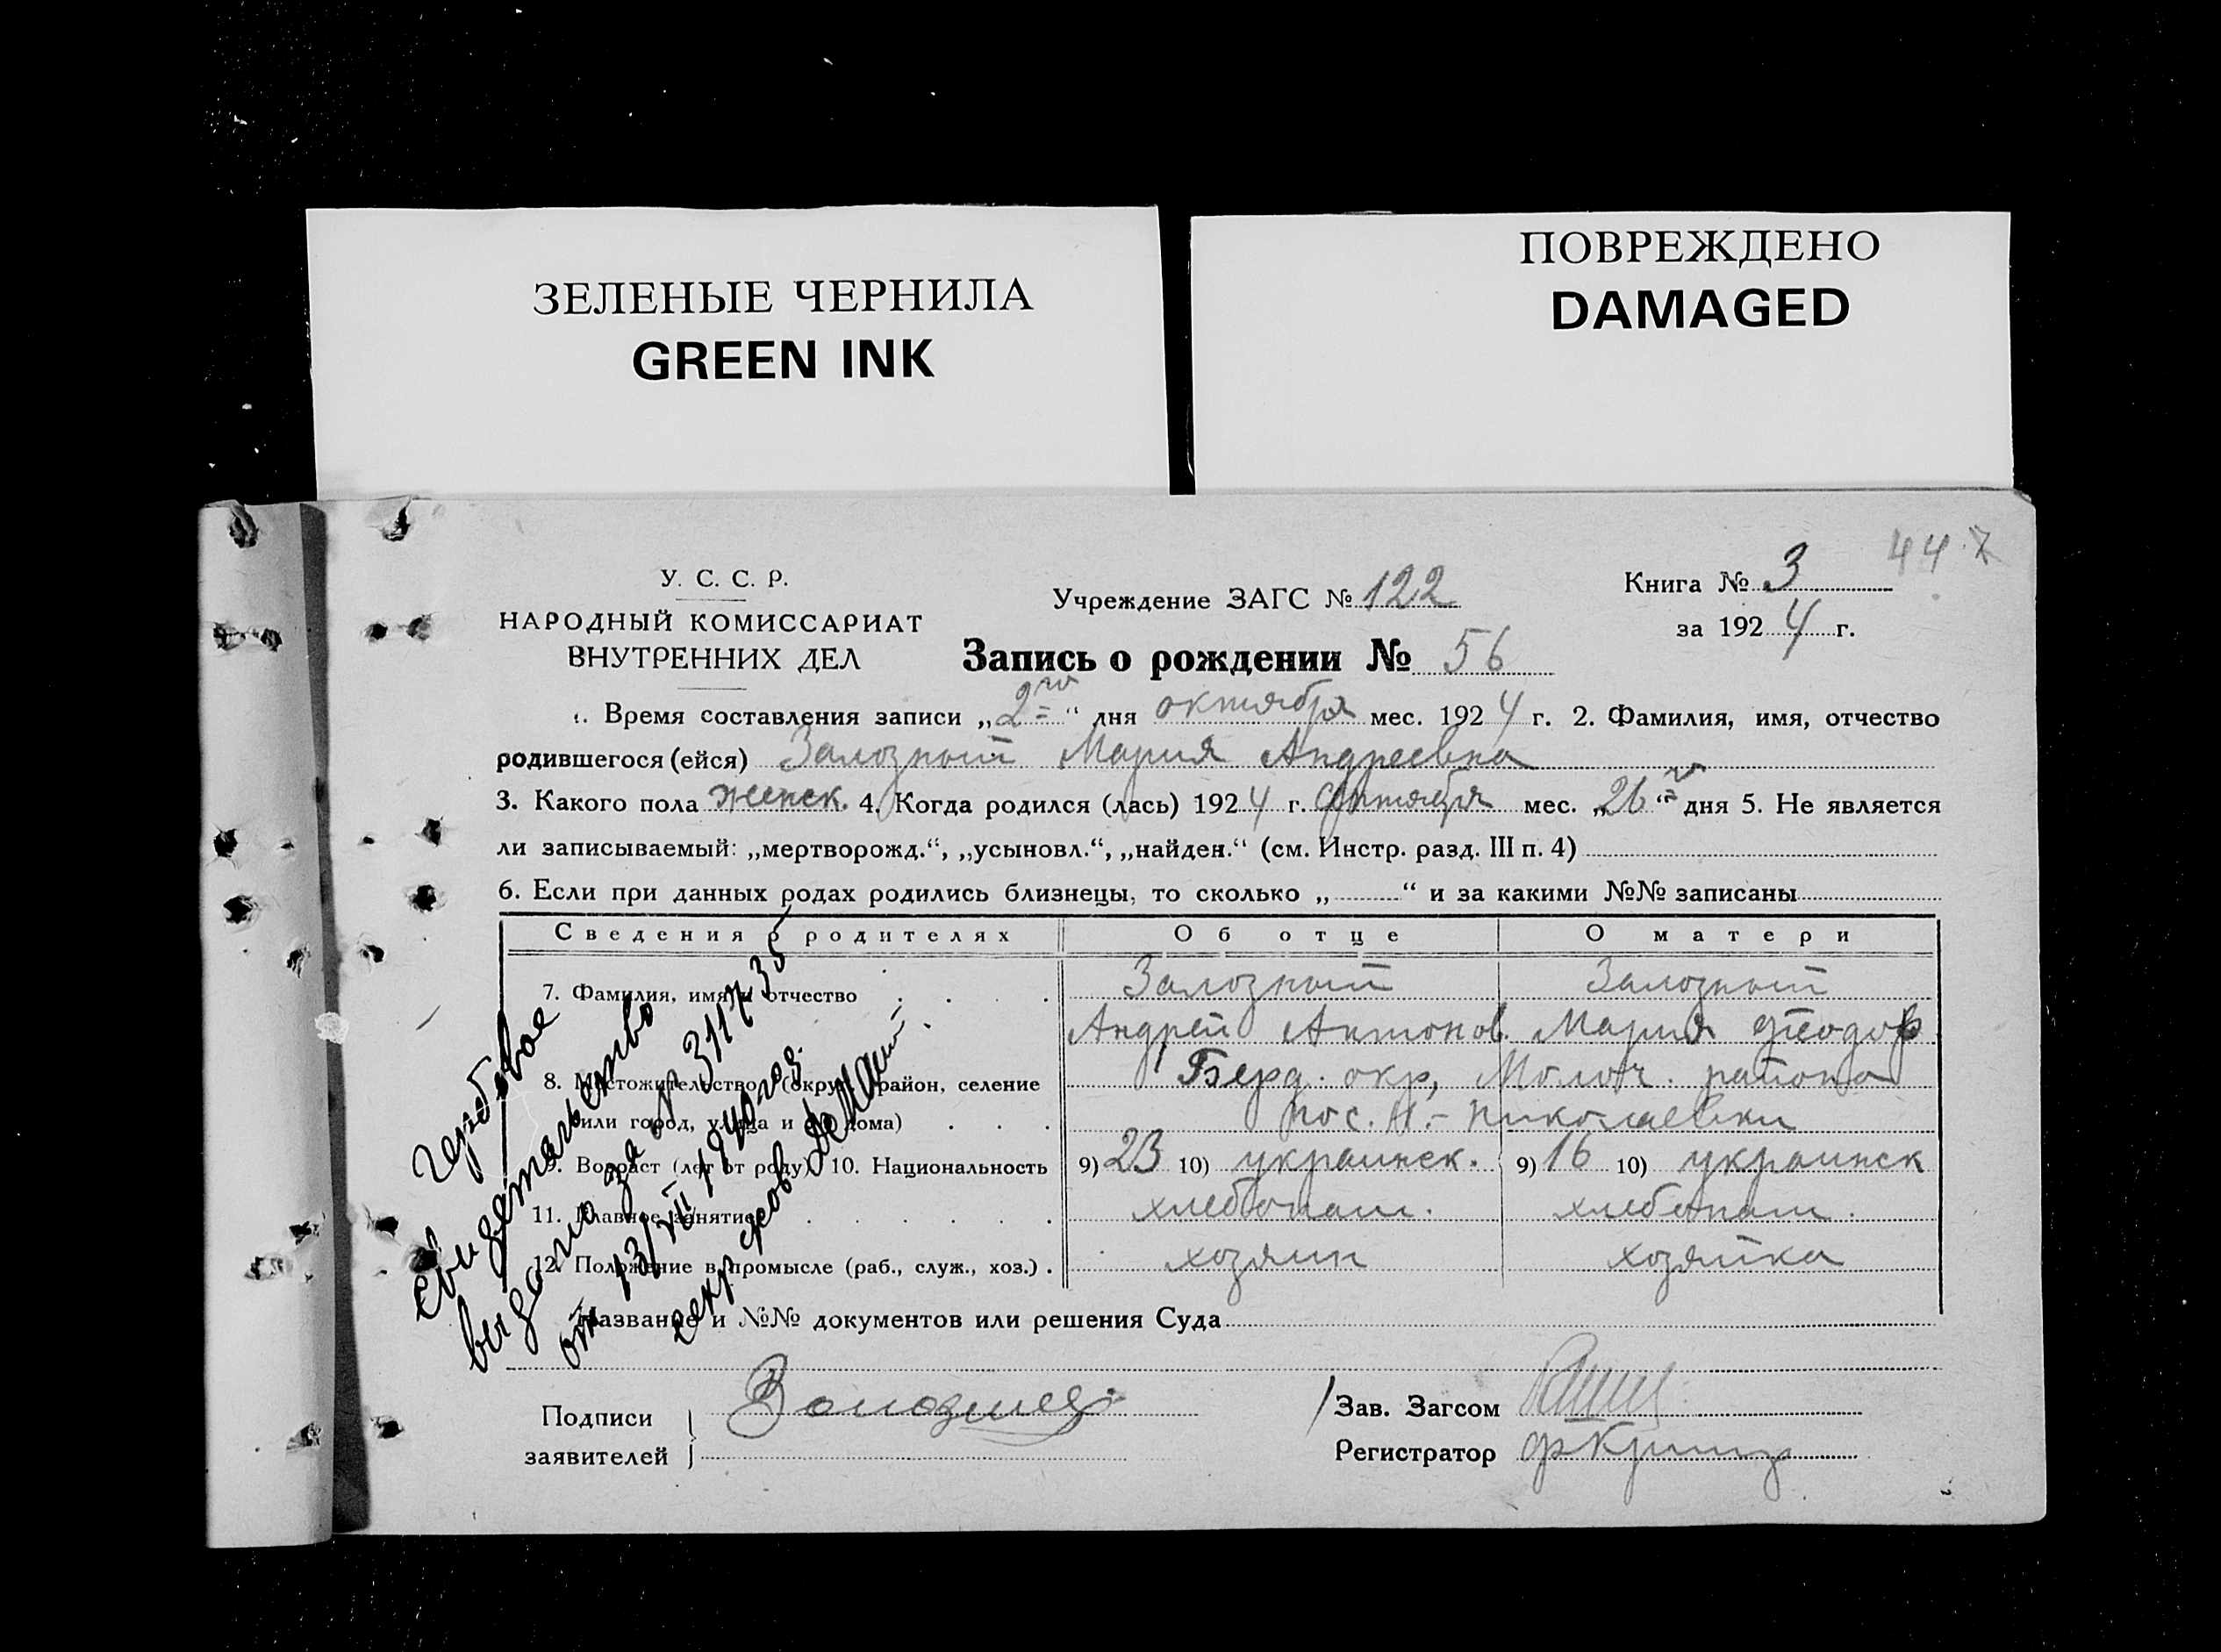 ЗЕЛЕНЫЕ ЧЕРНИЛА
GREEN INK
ПОВРЕЖДЕНО
DAMAGED
44
У. С. С. Р.
НАРОДНЫЙ КОМИССАРИАТ
ВНУТРЕННИХ ДЕЛ
Учреждение ЗАГС № 122
Книга № 3
за 1924 г.
Запись о рождении № 56
1. Время составления записи „2го“ дня октября мес. 1924 г. 2. Фамилия, имя, отчество
родившегося (ейся) Залозный Мария Андреевна
3. Какого пола женск. 4. Когда родился (лась) 1924 г. сентября мес. „26го“ дня 5. Не является
ли записываемый: „мертворожд.“, „усыновл.“, „найден.“ (см. Инстр. разд. III п. 4)
6. Если при данных родах родились близнецы, то сколько „ “ и за какими №№ записаны
Сведения о родителях Об отце О матери
7. Фамилия, имя и отчество Залозный Залозный
Андрей Антонов. Мария Феодор
8. Местожительство (округ, район, селение Берд. окр, Молоч. района
или город, улица и № дома) пос. Н.-Николаевки
9. Возраст (лет от роду) 10. Национальность 9) 23 10) украинск. 9) 16 10) украинск
11. Главное занятие хлебопаш. хлебопаш.
12. Положение в промысле (раб., служ., хоз.) хозяин хозяйка
Название и №№ документов или решения Суда
Гербовое
свидетельство
выдано за № 311735
от 13/VII 1940 год.
Подписи
заявителей
Зав. Загсом
Регистратор